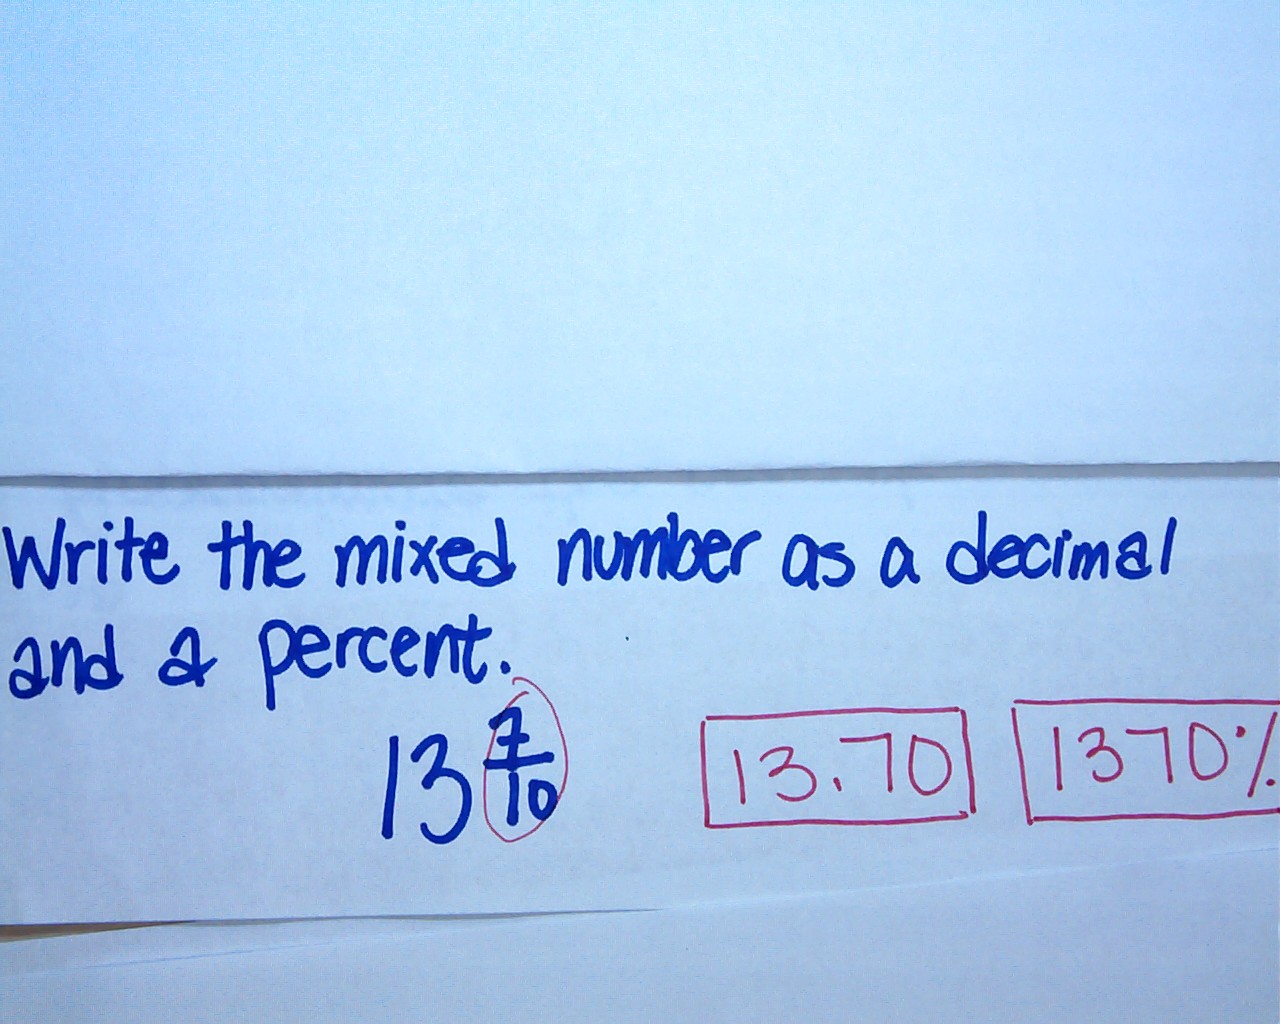 Write the mixed number as a decimal
and a percent.
13 7/10 13.70 1370%